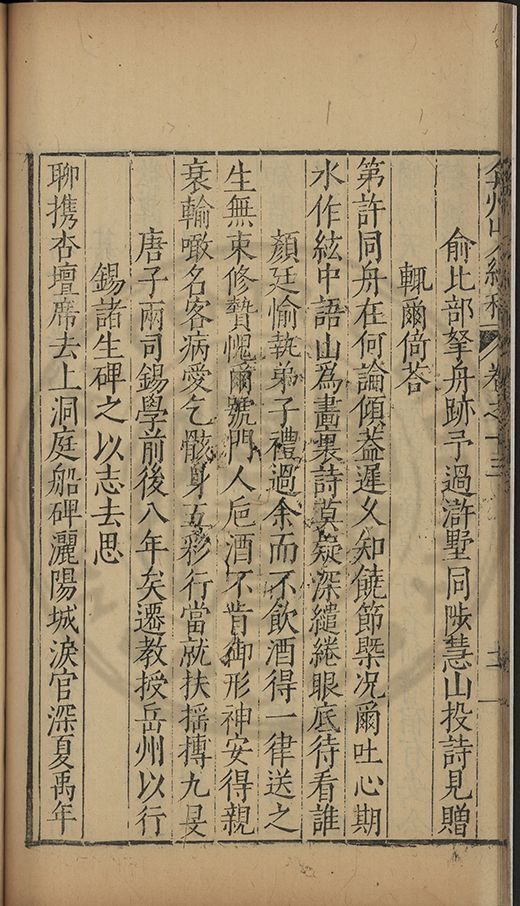 弇州山人續稿 卷之十三
俞比部拏舟跡予過滸墅同陟慧山投詩見贈
輒爾倚荅
第許同舟在何論傾葢遲久知饒節槩况爾吐心期
水作絃中語山為畫裏詩莫疑深繾綣眼底待看誰
顏廷愉執弟子禮過余而不飲酒得一律送之
生無束修贄愧爾號門人巵酒不肯御形神安得親
衰輪噉名客病愛乞骸身五彩行當就扶揺摶九旻
唐子兩司錫學前後八年矣遷教授岳州以行
錫諸生碑之以志去思
聊携杏壇席去上洞庭船碑灑陽城淚官深夏禹年